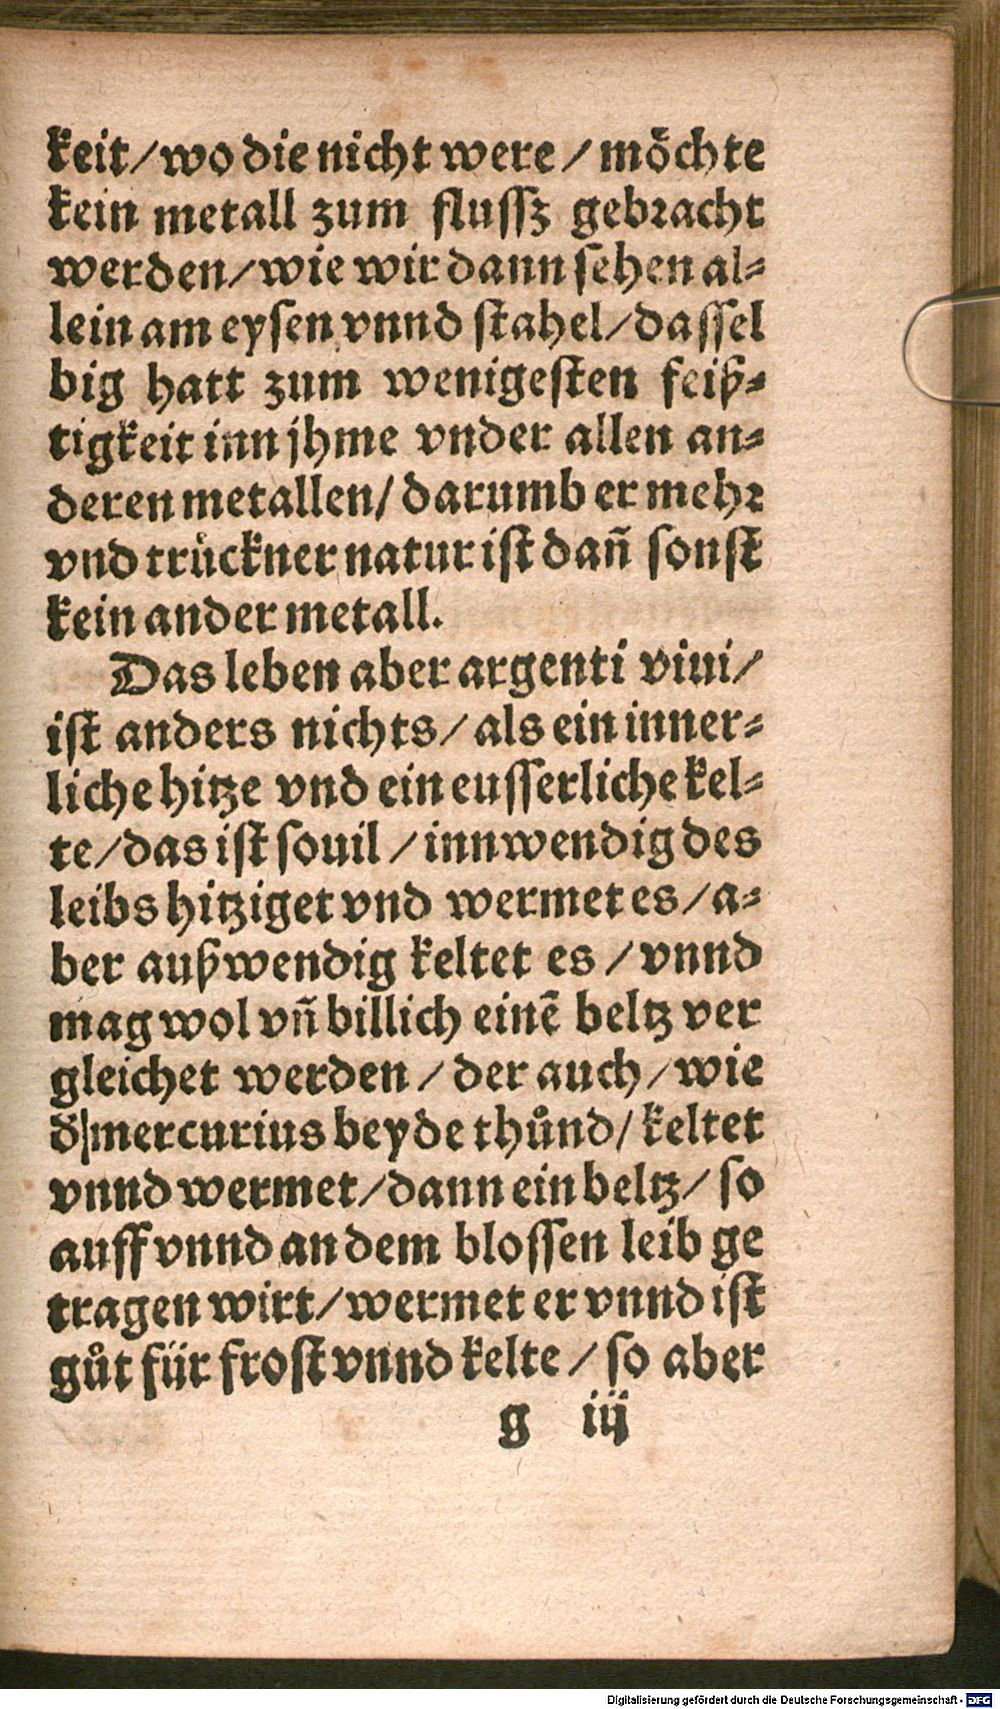 keit/wo die nicht were/möchte
kein metall zum flussz gebꝛacht
werden/wie wir dann sehen al⸗
lein am eysen vnnd stahel/dassel
big hatt zum wenigesten feiß⸗
tigkeit inn jhme vnder allen an⸗
deren metallen/darumb er mehꝛ
vnd trůckner natur ist dañ sonst
kein ander metall.
Das leben aber argenti viui/
ist anders nichts/als ein inner⸗
liche hitze vnd ein eusserliche kel⸗
te/das ist souil/innwendig des
leibs hitziget vnd wermet es/a⸗
ber außwendig keltet es/vnnd
mag wol vñ billich einē beltz ver
gleichet werden/der auch/wie
d̄ mercurius beyde thůnd/keltet
vnnd wermet/dann ein beltz/so
auff vnnd an dem blossen leib ge
tragen wirt/wermet er vnnd ist
gůt für frost vnnd kelte/so aber
g iij
Digitalisierung gefördert durch die Deutsche Forschungsgemeinschaft - DFG